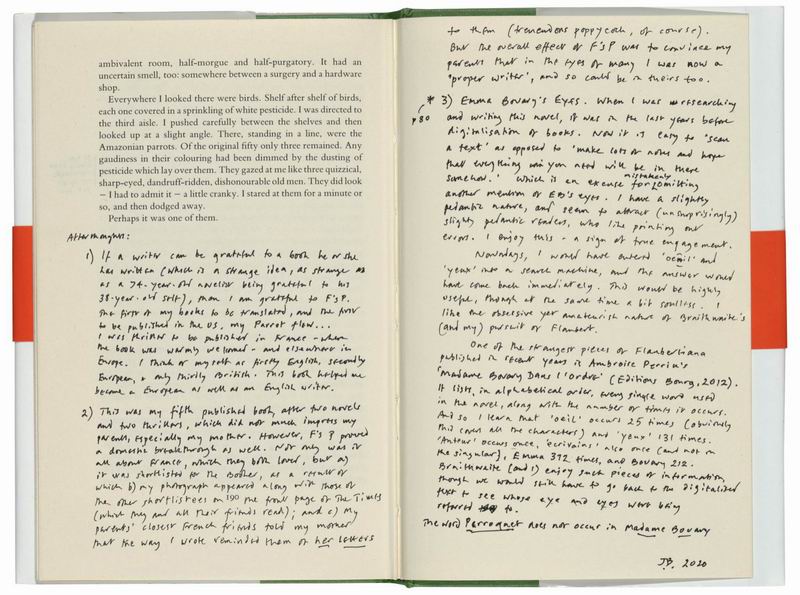 ambivalent room, half-morgue and half-purgatory. It had an
uncertain smell, too: somewhere between a surgery and a hardware
shop.
Everywhere I looked there were birds. Shelf after shelf of birds,
each one covered in a sprinkling of white pesticide. I was directed to
the third aisle. I pushed carefully between the shelves and then
looked up at a slight angle. There, standing in a line, were the
Amazonian parrots. Of the original fifty only three remained. Any
gaudiness in their colouring had been dimmed by the dusting of
pesticide which lay over them. They gazed at me like three quizzical,
sharp-eyed, dandruff-ridden, dishonourable old men. They did look
– I had to admit it – a little cranky. I stared at them for a minute or
so, and then dodged away.
Perhaps it was one of them.
Afterthoughts:
1) If a writer can be grateful to a book he or she
has written (which is a strange idea, as strange as
as a 74-year-old novelist being grateful to his
38-year-old self), then I am grateful to F's P.
The first of my books to be translated, and the first
to be published in the US, my Parrot flew...
I was thrilled to be published in France – where
the book was warmly welcomed – and elsewhere in
Europe. I think of myself as firstly English, secondly
European, & only thirdly British. This book helped me
become a European as well as an English writer.
2) This was my fifth published book, after two novels
and two thrillers, which did not much impress my
parents, especially my mother. However, F's P proved
a domestic breakthrough as well. Not only was it
all about France, which they both loved, but a)
it was shortlisted for the Booker, as a result of
which b) my photograph appeared along with those of
the other shortlistees on the front page of The Times
190
(which they and all their friends read); and c) my
parents' closest French friends told my mother
that the way I wrote reminded them of her letters
to them (tremendous poppycock, of course).
But the overall effect of F's P was to convince my
parents that in the eyes of many I was now a
'proper writer', and so could be in theirs too.
* 3) Emma Bovary's Eyes. When I was researching
p 80 and writing this novel, it was in the last years before
digitalisation of books. Now it is easy to 'scan
a text' as opposed to 'make lots of notes and hope
that everything you need will be in there
somehow.' Which is an excuse for mistakenly omitting
another mention of EB's eyes. I have a slightly
pedantic nature, and seem to attract (unsurprisingly)
slightly pedantic readers, who like pointing out
errors. I enjoy this – a sign of true engagement.
Nowadays, I would have entered 'oeil' and
'yeux' into a search machine, and the answer would
have come back immediately. This would be highly
useful, though at the same time a bit soulless. I
like the obsessive yet amateurish nature of Braithwaite's
(and my) pursuit of Flaubert.
One of the strangest pieces of Flaubertiana
published in recent years is Ambroise Perrin's
'Madame Bovary Dans l'Ordre' (Editions Bourg, 2012).
It lists, in alphabetical order, every single word used
in the novel, along with the number of times it occurs.
And so I learn that 'oeil' occurs 25 times (obviously
this covers all the characters) and 'yeux' 131 times.
'Auteur' occurs once, 'écrivains' also once (and not in
the singular), Emma 372 times, and Bovary 212.
Braithwaite (and I) enjoy such pieces of information,
though we would still have to go back to the digitalised
text to see whose eye and eyes were being
referred to.
The word Perroquet does not occur in Madame Bovary
J.B. 2020